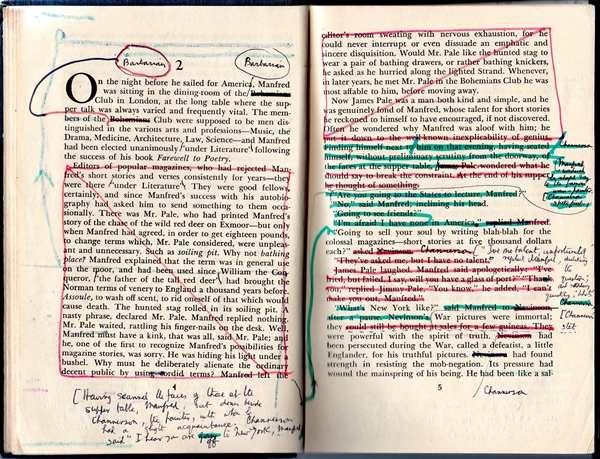 Barbarian
Barbarian
2
On the night before he sailed for America, Manfred
was sitting in the dining-room of the Bohemians
Club in London, at the long table where the sup-
per talk was always varied and frequently vital. The mem-
bers of the Bohemians Club were supposed to be men dis-
tinguished in the various arts and professions—Music, the
Drama, Medicine, Architecture, Law, Science—and Manfred
had been elected unanimously under Literature following
the success of his book Farewell to Poetry.
Editors of popular magazines, who had rejected Man-
fred's short stories and verses consistently for years—they
were there under Literature. They were good fellows,
certainly, and since Manfred's success with his autobio-
graphy had asked him to send something to them occa-
sionally. There was Mr. Pale, who had printed Manfred's
story of the chase of the wild red deer on Exmoor—but only
when Manfred had agreed, in order to get eighteen pounds,
to change terms which, Mr. Pale considered, were unpleas-
ant and unnecessary. Such as soiling pit. Why not bathing
place? Manfred explained that the term was in general use
on the moor, and had been used since William the Con-
queror, the father of the tall red deer had brought the
Norman terms of venery to England a thousand years before.
Assoule, to wash off soot, to rid oneself of that which would
cause death. The hunted stag rolled in its soiling pit. A
nasty phrase, declared Mr. Pale. Manfred replied nothing.
Mr. Pale waited, rattling his finger-nails on the desk. Well,
Manfred must have a kink, that was all, said Mr. Pale; and
he, one of the first to recognize Manfred's possibilities for
magazine stories, was sorry. He was hiding his light under a
bushel. Why must he deliberately alienate the ordinary
decent public by using sordid terms? Manfred left the
[Having scanned the faces of those at the
supper table, Manfred sat down beside
Channerson, the painter, with whom he
had a slight acquaintance. Channerson
said "I hear you are going to New York, Manfred
editor's room sweating with nervous exhaustion, for he
could never interrupt or even dissuade an emphatic and
sincere disquisition. Would Mr. Pale like the hunted stag to
wear a pair of bathing drawers, or rather bathing knickers,
he asked as he hurried along the lighted Strand. Whenever,
in later years, he met Mr. Pale in the Bohemians Club he was
most affable to him, before moving away.
Now James Pale was a man both kind and simple, and he
was genuinely fond of Manfred, whose talent for short stories
he reckoned to himself to have encouraged, if not discovered.
Often he wondered why Manfred was aloof with him; he
put it down to the well-known inexplicability of genius.
Finding himself near him on that evening, having seated
himself, without preliminary scrutiny from the doorway, of
the faces at the supper table, James Pale wondered what he
should say to break the constraint. At the end of his supper
he thought of something.
"Are you going to the States to lecture, Manfred?"
"No," said Manfred, inclining his head.
"Going to see friends?"
"I'm afraid I have none in America," replied Manfred.
"Going to sell your soul by writing blah-blah for the
colossal magazines—short stories at five thousand dollars
each?" asked Nevinson Channerson
"They've asked me, but I have no talent."
James Pale laughed. Manfred said apologetically, "I've
tried, but failed. I say, will you have a glass of port?" "Thank
you," replied Jimmy Pale. "You know," he added, "I can't
make you out, Manfred."
"What's New York like?" said Manfred to Nevinson
after a pause. Nevinson's War pictures were immortal;
they could still be bought at sales for a few guineas. They
were powerful with the spirit of truth. Nevinson had
been persecuted during the War, called a defeatist, a little
Englander, for his truthful pictures. Nevinson had found
strength in resisting the mob-negation. Its pressure had
wound the mainspring of his being. He had been like a sal-
5
Channerson
Channerson
[Channerson
stet